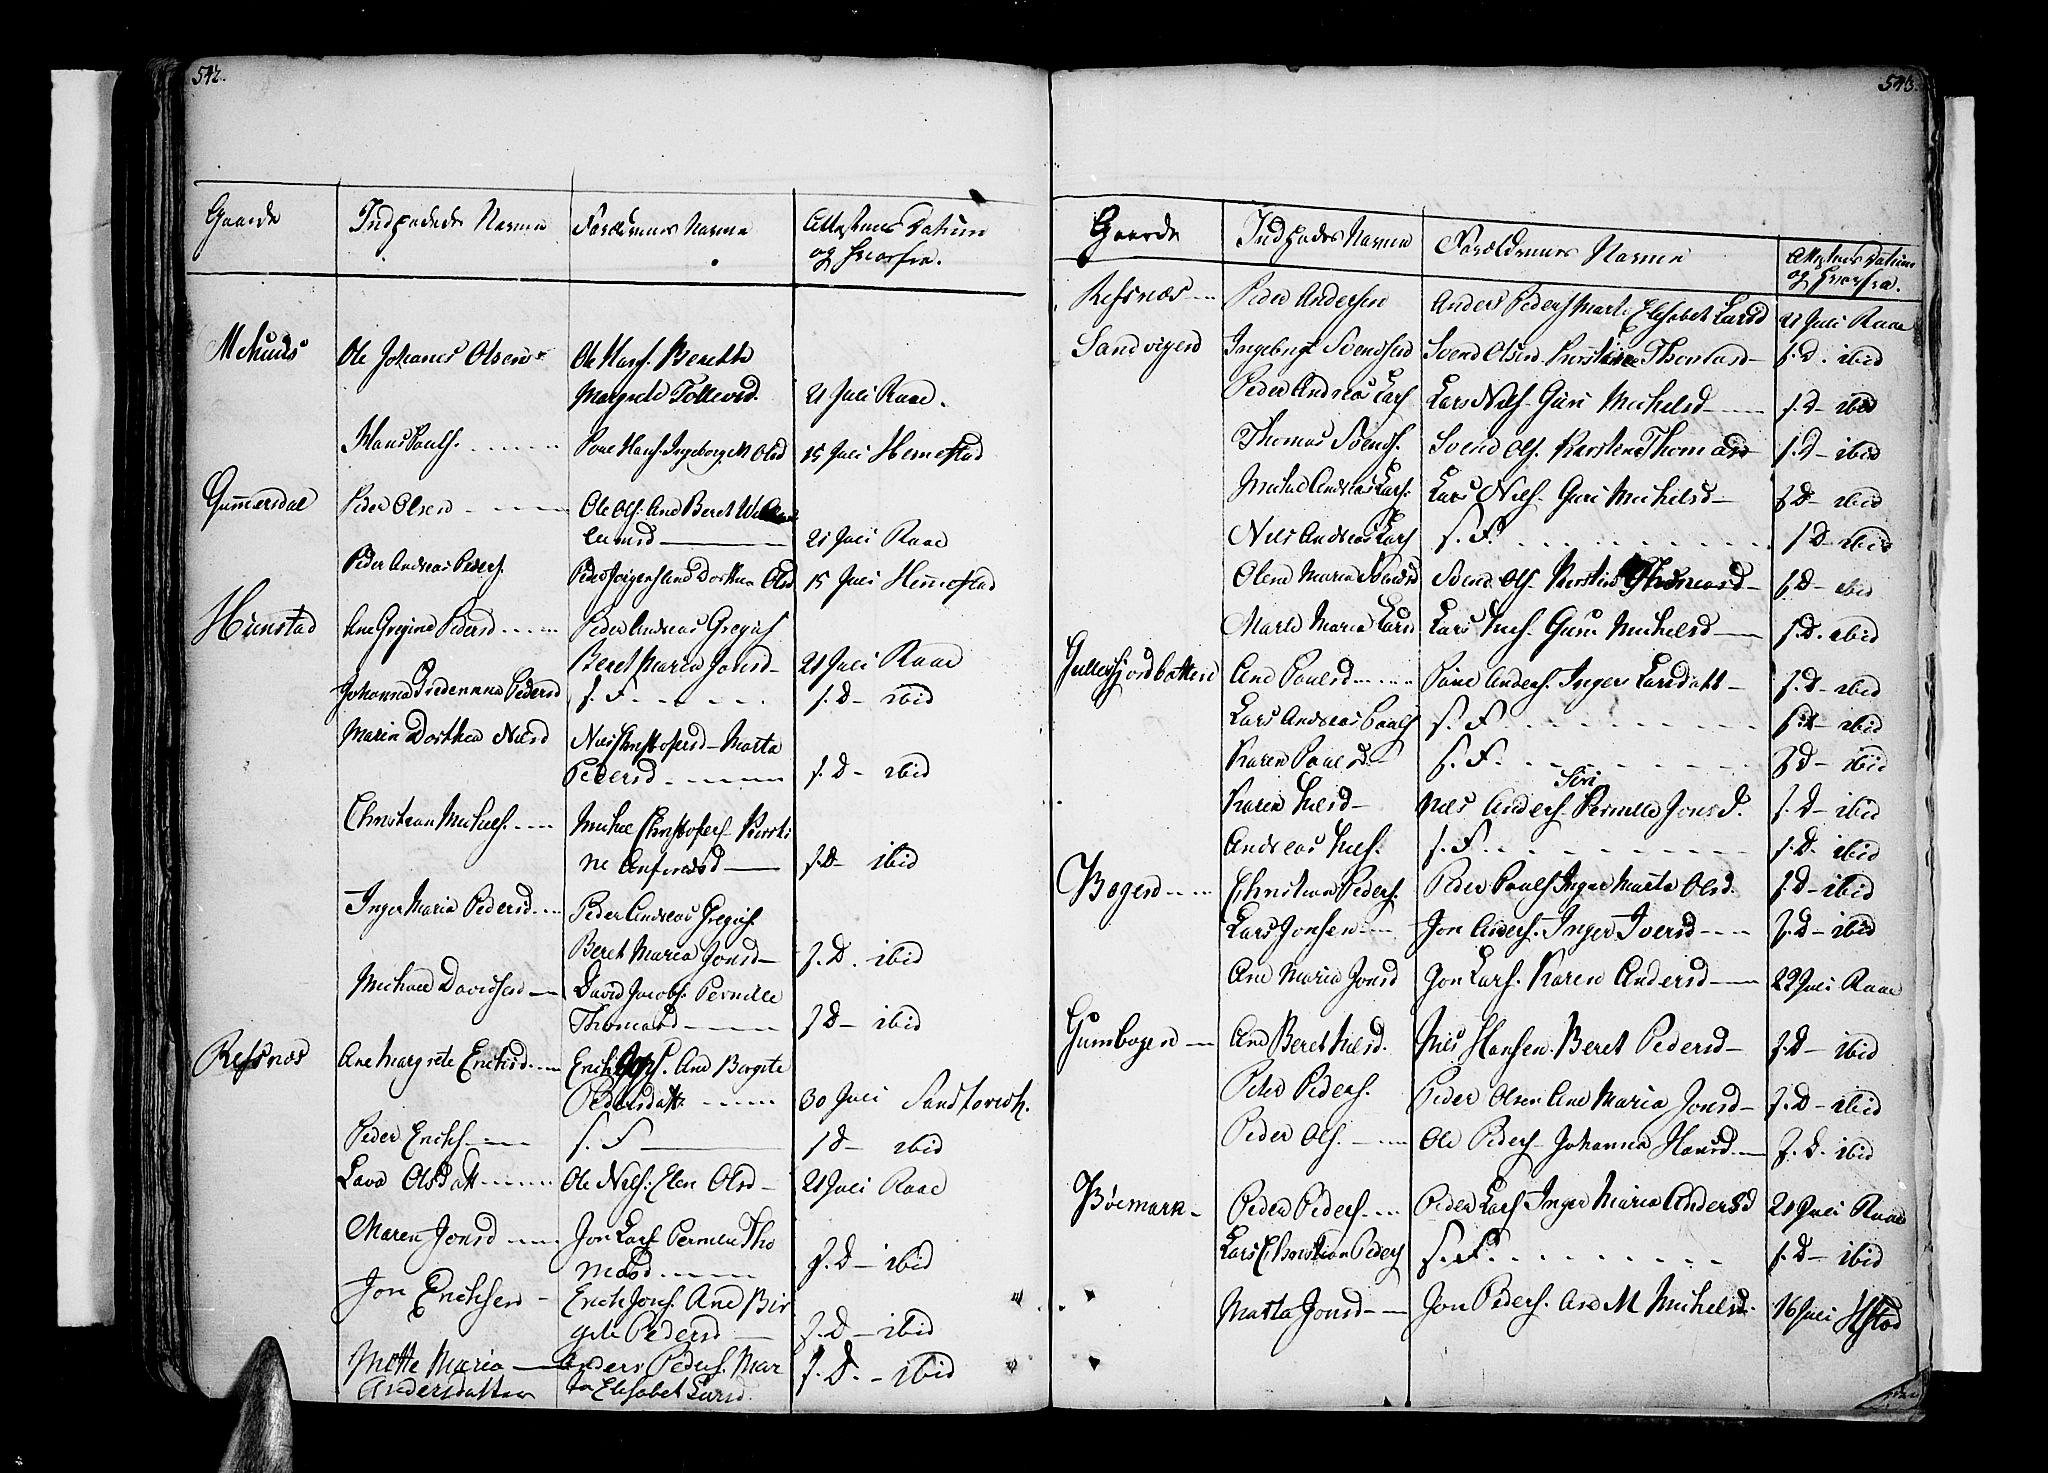 542.
Gaarde Indpodedes Navne Forældrenes Navne Attestens Datum
og hvorfra.
Melaas Ole Johanes Olsen Ole Hans. Berethe
Margrete Tollevsd. 21 Juli Raae.
Hans Pauls. Povel Hans. Ingeborg M Olsd 15 Juli Hemestad
Gummersdal Peder Olsen Ole Ols. Ane Beret
21 Juli Raae
Peder Andreas Peders. Peder Jørgens and Dorthea Olsd 15 Juli Hemestad
Hunstad Ane Gregine Pedersd Peder Andreas Gregus
Beret Maria Jonsd 21 Juli Raae
Johanna Fredericka Pedersd s. F. s. D - ibid
Maria Dorthea Nilsd Nils Christofers - Marta
Pedersd. s. D - ibid
Christian Michels. Michel Christofers. Kirsti
ne Anfinsd s. D - ibid
Inger Maria Pedersd Peder Andreas Gregus.
Beret Maria Jonsd s. D. ibid
Michael Davidsen David Jacobs. Pernille
Thomasd s. D - ibid
Refsnæs Ane Margrete Erichsd Erich Ane Birgite
Pedersdatt. 30 Juli Sandtorvh.
Peder Erichs. s. F s. D - ibid
Lava Olsdatt Ole Nils. Elen Olsd 21 Juli Raae
Maren Jonsd Jon Lars. Pernille Tho
masd s. D - ibid
Jon Erichsen Erich Jons. Ane Bir
gite Pedersd s. D - ibid
Mette Maria Anders Peders. Mar
Andersdatter ta Elisabet Larsd. s. D. - ibid
543.
Gaarde Indpodes Navne Forældrenes Navne Attestens Datum
og hvorfra.
Refsnæs Peder Andersen Anders Peders Marte Elisabet Larsd 21 Juli Raae
Sandvigen Ingebrigt Svendsen Svend Olsen Kirstine Thomasd s. D. ibid
Peder Andreas Lars Lars Nils. Guri Michelsd s. D - ibid
Thomas Svends. Svend Ols. Karstine Thomasd s. D - ibid
Michel Andreas Lars. Lars Nils. Guri Michelsd s. D - ibid
Nils Andreas Lars s. F. s. D - ibid
Olene Maria Svendsd Svend Ols. Kirstine Thomasd s. D - ibid
Marte Maria Larsd Lars Nils. Guri Michelsd s. D. ibid
Gullesfjordbotten Ane Paulsd Paul Anders. Inger Larsdatt s. D - ibid
Lars Andreas Pauls s. F s. D - ibid
Karen Paulsd s. F. s. D - ibid
Siri
Karen Nilsd Nils Anders. Pernille Jonsd. s. D - ibid
Andreas Nils. s. F. s. D. ibid
Bogen Christian Peders. Peder Pauls Inger Marta Olsd. s. D - ibid
Lars Jonsen Jon Anders. Inger Iversd s. D - ibid
Ane Maria Jonsd Jon Lars. Karen Andersd 22 Juli Raae
Gumbogen Ane Beret Nilsd. Nils Hansen. Beret Pedersd s. D - ibid
Peder Peders. Peder Olsen Ane Maria Jonsd s. D - ibid
Peder Ols. Ole Peders. Johanna Hansd s. D. ibid
Bøemark Peder Peders. Peder Lars Inger Maria Andersd 21 Juli Raae
Lars Christian Peders s. F. s. D - ibid
Marta Jonsd Jon Peders. Ane M Michelsd. 16 Juli Hstad